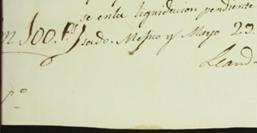 se enla liquidacion pendiente
en 300. p.s
Mexico y Mayo 23.
Leand
p.o